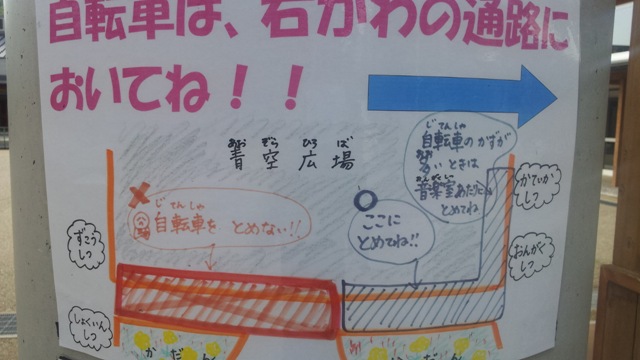 自転車は、右がわの通路に
おいてね！！
あおぞらひろば
青空広場
じてんしゃ
自転車のかずが
おお
多いときは
おんがくしつ
音楽室あたりに
とめてね
かていかしつ
じてんしゃ
自転車を とめない!!
ここに
とめてね!!
ずこうしつ
おんがくしつ
しょくいんしつ
かだん
かだん